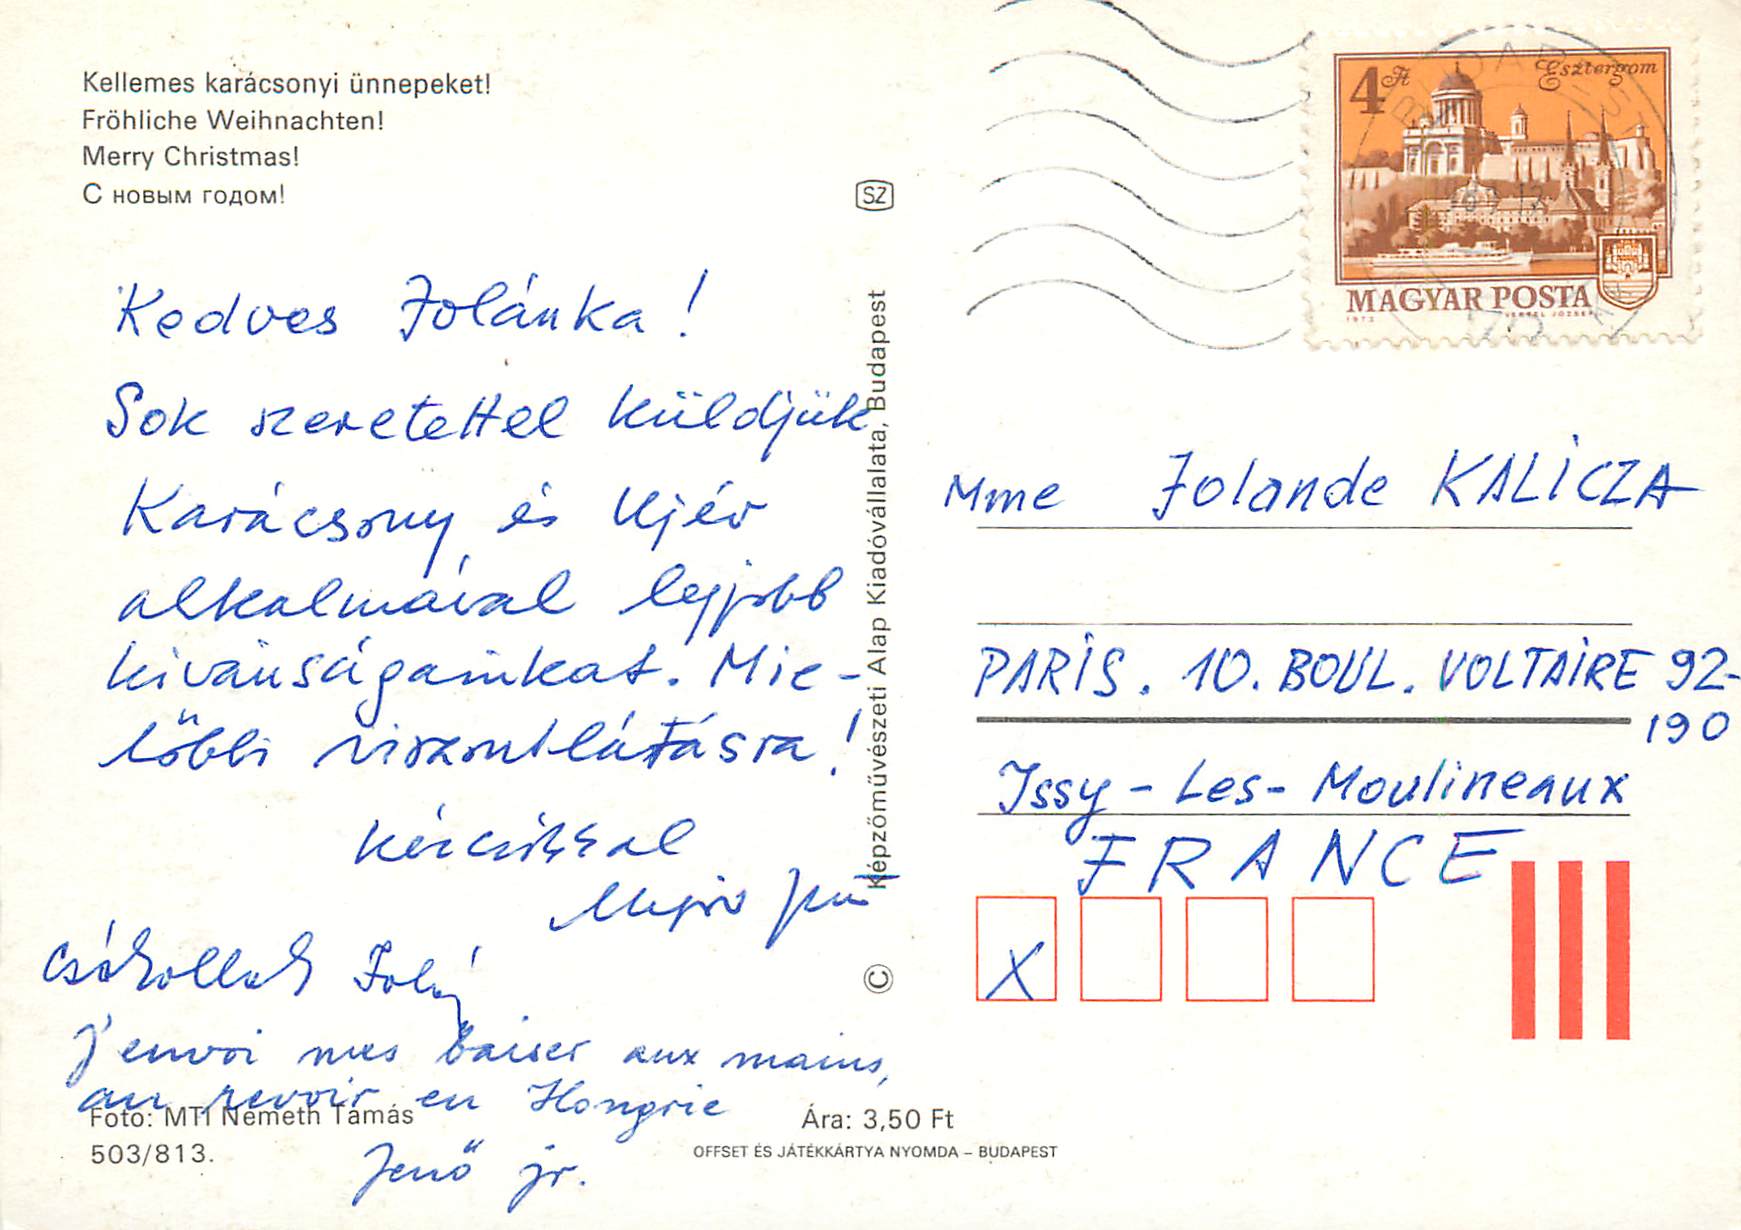 Kellemes karácsonyi ünnepeket!
Fröhliche Weihnachten!
Merry Christmas!
С новым годом!
SZ
4 Ft
Esztergom
MAGYAR POSTA
1973
VERTEL JÓZSEF
Kedves Jolánka!
Sok szeretettel küldjük
Karácsony és Ujév
alkalmával legjobb
kivánságainkat. Mie-
lőbbi viszontlátásra!
Kézcsókkal
Jenő
Csókollak Joli
J'envoi mes baiser aux mains,
au revoir en Hongrie
Jenő jr.
Foto: MTI Németh Tamás
503/813.
Ára: 3,50 Ft
OFFSET ÉS JÁTÉKKÁRTYA NYOMDA – BUDAPEST
Képzőművészeti Alap Kiadóvállalata, Budapest
©
Mme Jolande KALICZA
PARIS. 10. BOUL. VOLTAIRE 92-
190
Issy-Les-Moulineaux
FRANCE
X